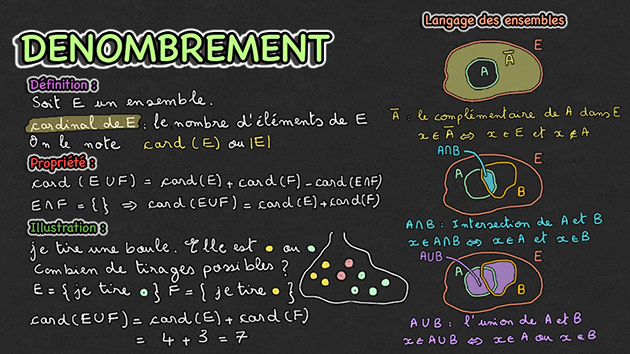 DENOMBREMENT
Définition :
Soit E un ensemble.
cardinal de E : le nombre d'éléments de E
On le note card (E) ou |E|
Propriété :
card (E∪F) = card(E) + card(F) - card(E∩F)
E∩F = { } ⇒ card(E∪F) = card(E) + card(F)
Illustration :
je tire une boule. Elle est ● ou ●
Combien de tirages possibles ?
E = { je tire ● } F = { je tire ● }
card(E∪F) = card(E) + card(F)
= 4 + 3 = 7
Langage des ensembles
E
A
A̅
A̅ : le complémentaire de A dans E
x∈A̅ ⇔ x∈E et x∉A
A∩B
E
A
B
A∩B : Intersection de A et B
x∈A∩B ⇔ x∈A et x∈B
A∪B
E
A
B
A∪B : l'union de A et B
x∈A∪B ⇔ x∈A ou x∈B